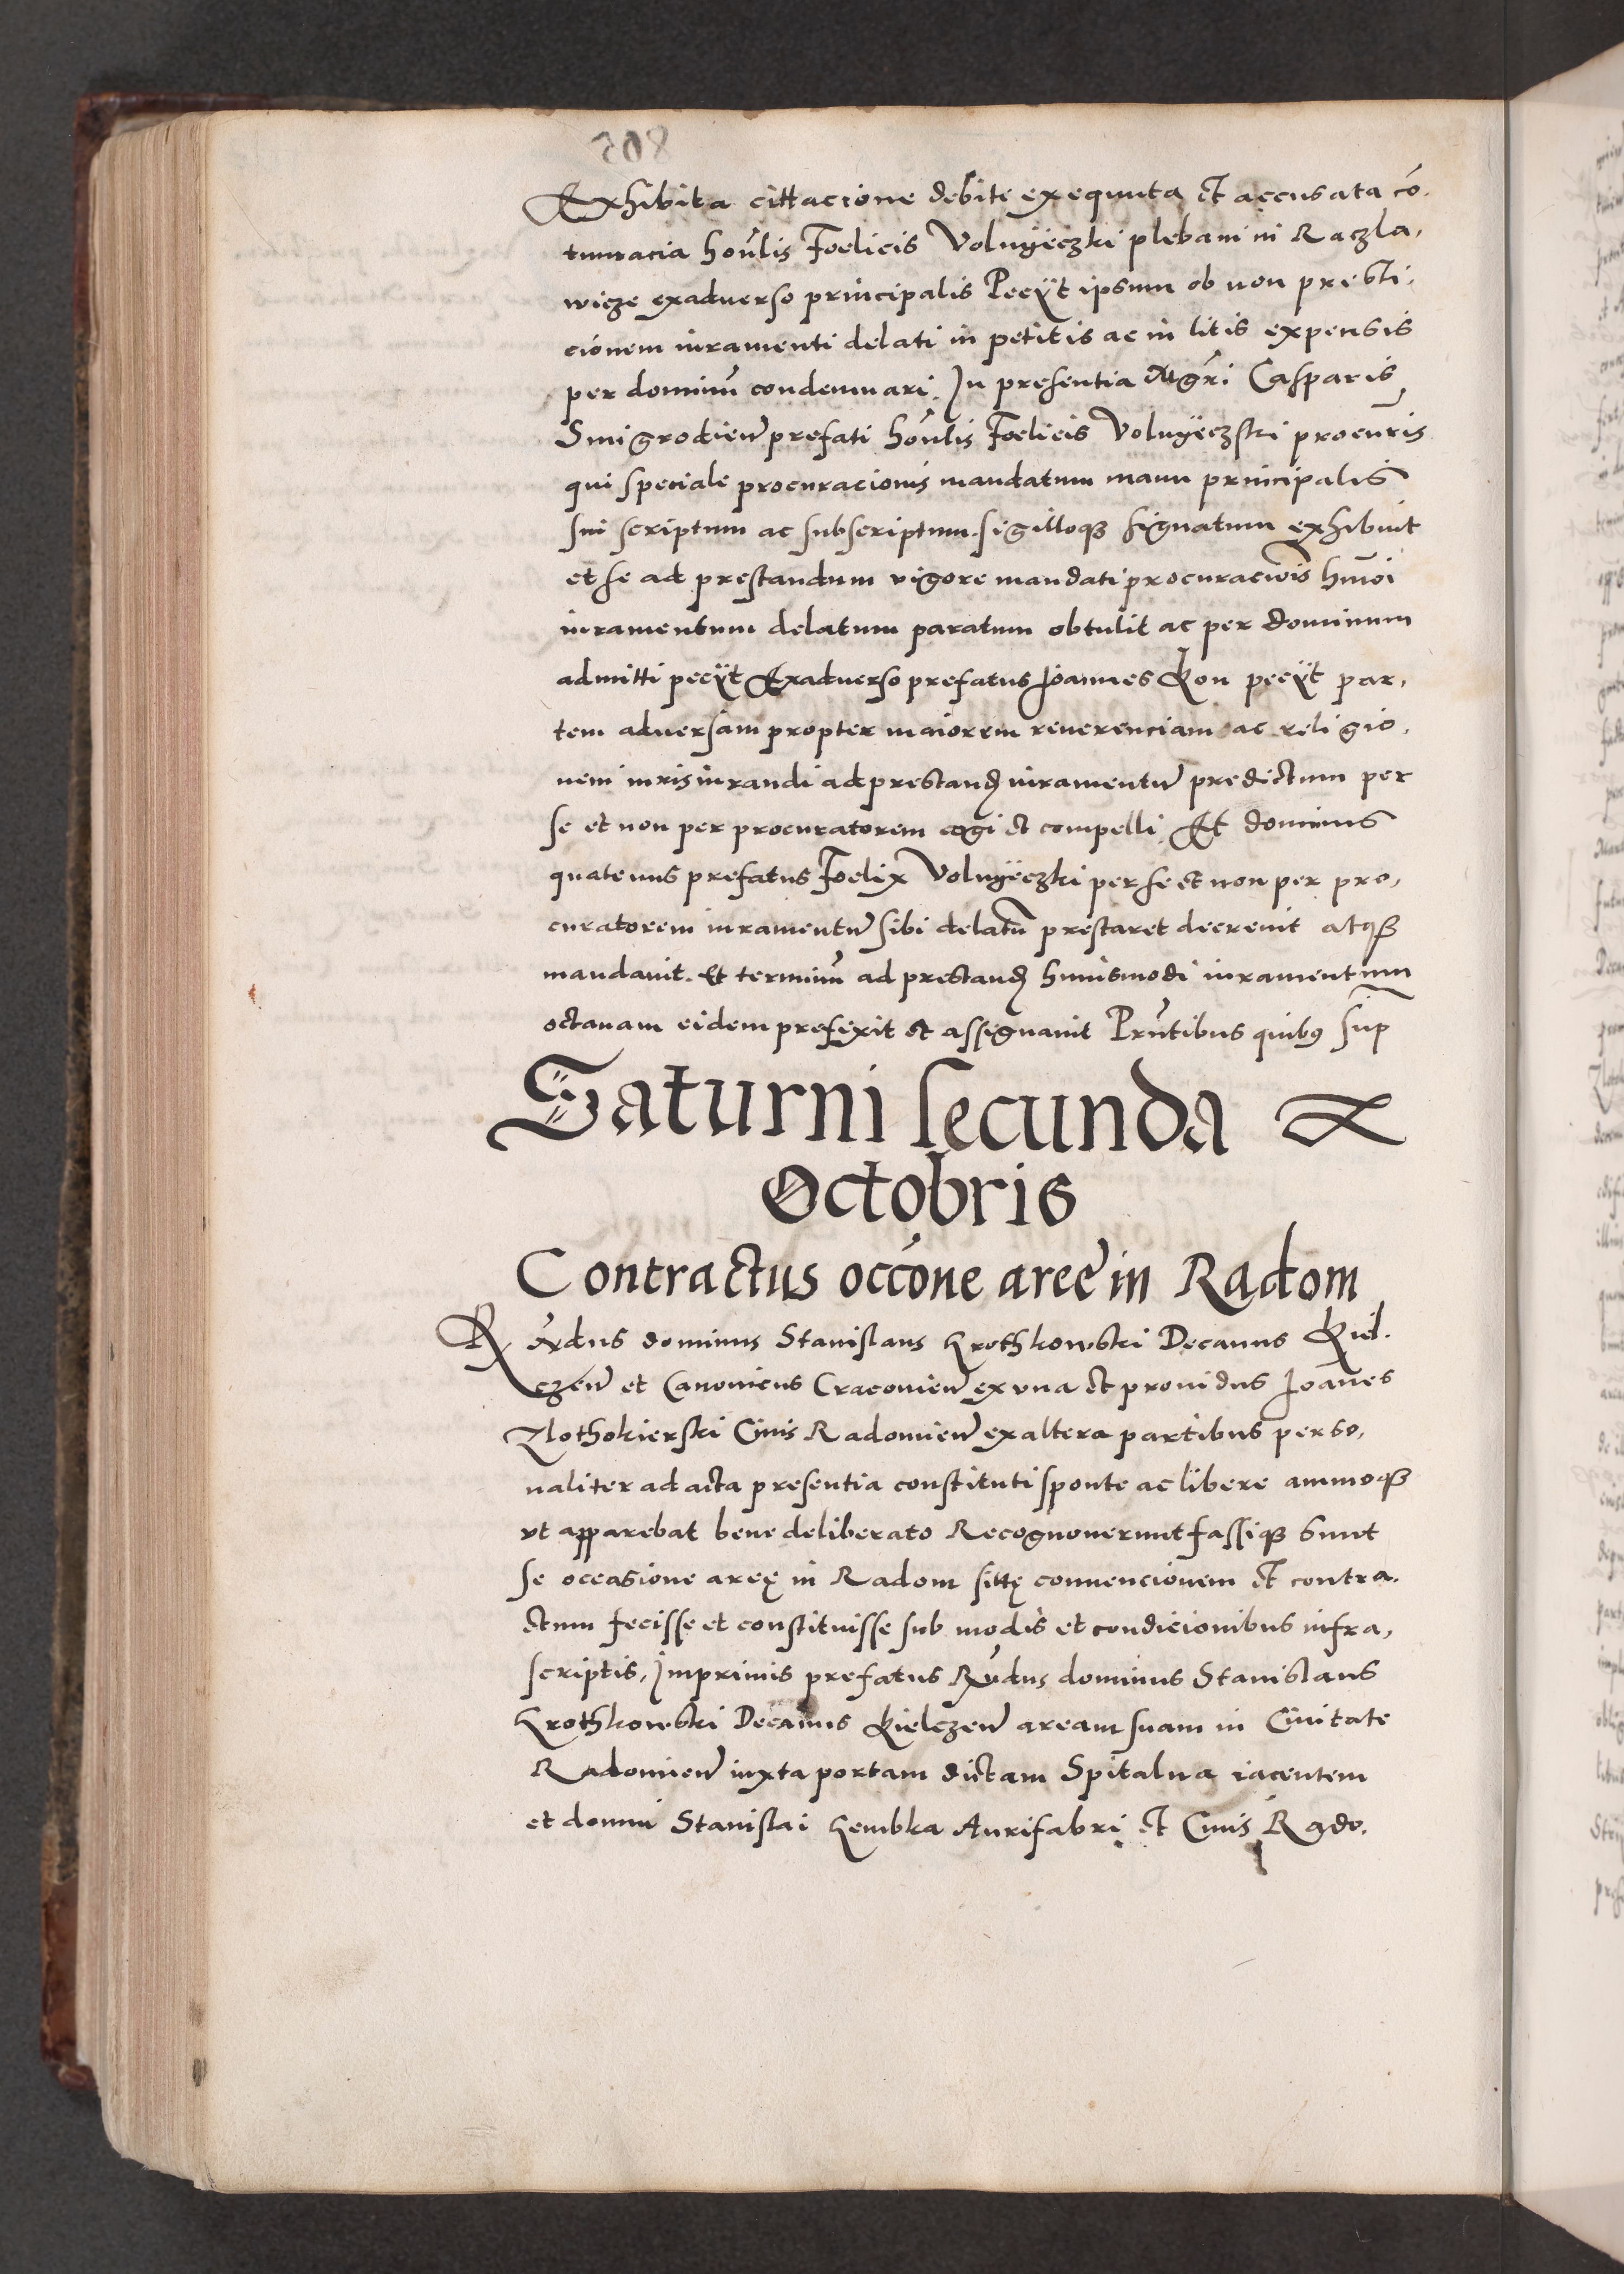 Exhibita cittacione debite exequuta et accusata co͂.
tumacia hon̄lis Foelicis Volnÿeczki plebani in Raczla,
wicze exaduerso principalis Peciÿt ipsum ob non presti,
cionem iuramenti delati in petitis ac in litis expensis
per dominū condemnari. In presentia Mgr̄i Casparis
Smigrodien̄ prefati hon̄lis Foelicis Volnÿeczski procuris
qui speciale procuracionis mandatum manu principalis
sui scriptum ac subscriptum. sigilloqꝫ signatum exhibuit
et se ad prestandum vigore mandati procuracōis hm̄oi
iuramentum delatum paratum obtulit ac per dominum
admitti peciÿt Exaduerso prefatus Joannes Kon peciÿt par,
tem aduersam propter maiorem reuerenciam ac religio,
nem iurisiurandi ad prestanđ iuramentū predictum per
se et non per procuratorem cogi et compelli. Et dominus
quatenus prefatus Foelix Volnÿeczki per se et non per pro,
curatorem iuramentū sibi delatū prestaret decreuit atqꝫ
mandauit. Et terminū ad prestanđ huiusmodi iuramentum
octauam eidem prefixit et assignauit Pr̄ntibus quibꝰ sup̄
Saturni secunda
Octobris
Contractus occōne aree in Radom
Rev̄dus dominus Stanislaus Krothkowski Decanus Kiel.
czen̄ et Canonicus Cracouien̄ ex vna et prouidus Joānes
Zlothokierski Ciuis Radomien̄ ex altera partibus perso,
naliter ad acta presentia constituti sponte ac libere animoqꝫ
vt apparebat bene deliberato Recognouerunt fassiqꝫ sunt
se occasione areę in Radom sittę conuencionem et contra.
ctum fecisse et constituisse sub modis et condicionibus infra,
scriptis, Imprimis prefatus Rv̄dus dominus Stanislaus
Krothkowski Decanus Kielczen̄ aream suam in Ciuitate
Radomien̄ iuxta portam dictam Spitalna iacentem
et domui Stanislai Kembka Aurifabri et Ciuis Rado.